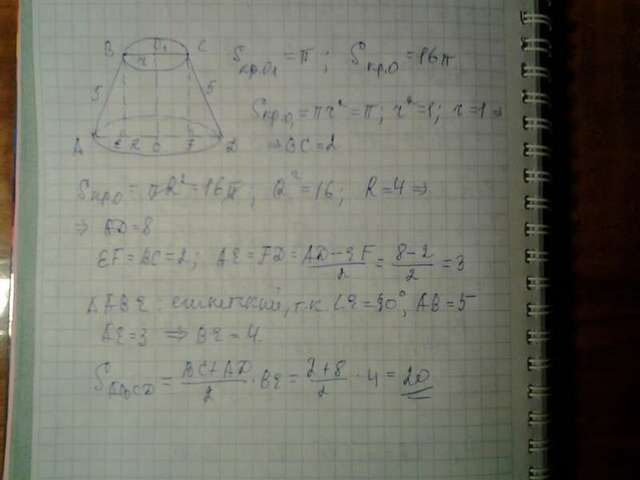 B O₁ C
r
5 5
A E R O F D
Sкр.O₁ = π ; Sкр.O = 16π
Sкр.O₁ = πr² = π; r² = 1; r = 1 ⇒
⇒ BC = 2
Sкр.O = πR² = 16π; R² = 16; R = 4 ⇒
⇒ AD = 8
EF = BC = 2; AE = FD = (AD − EF)/2 = (8 − 2)/2 = 3
ΔABE: египетский, т.к. ∠E = 90°, AB = 5
AE = 3 ⇒ BE = 4.
SABCD = (BC + AD)/2 · BE = (2 + 8)/2 · 4 = 20